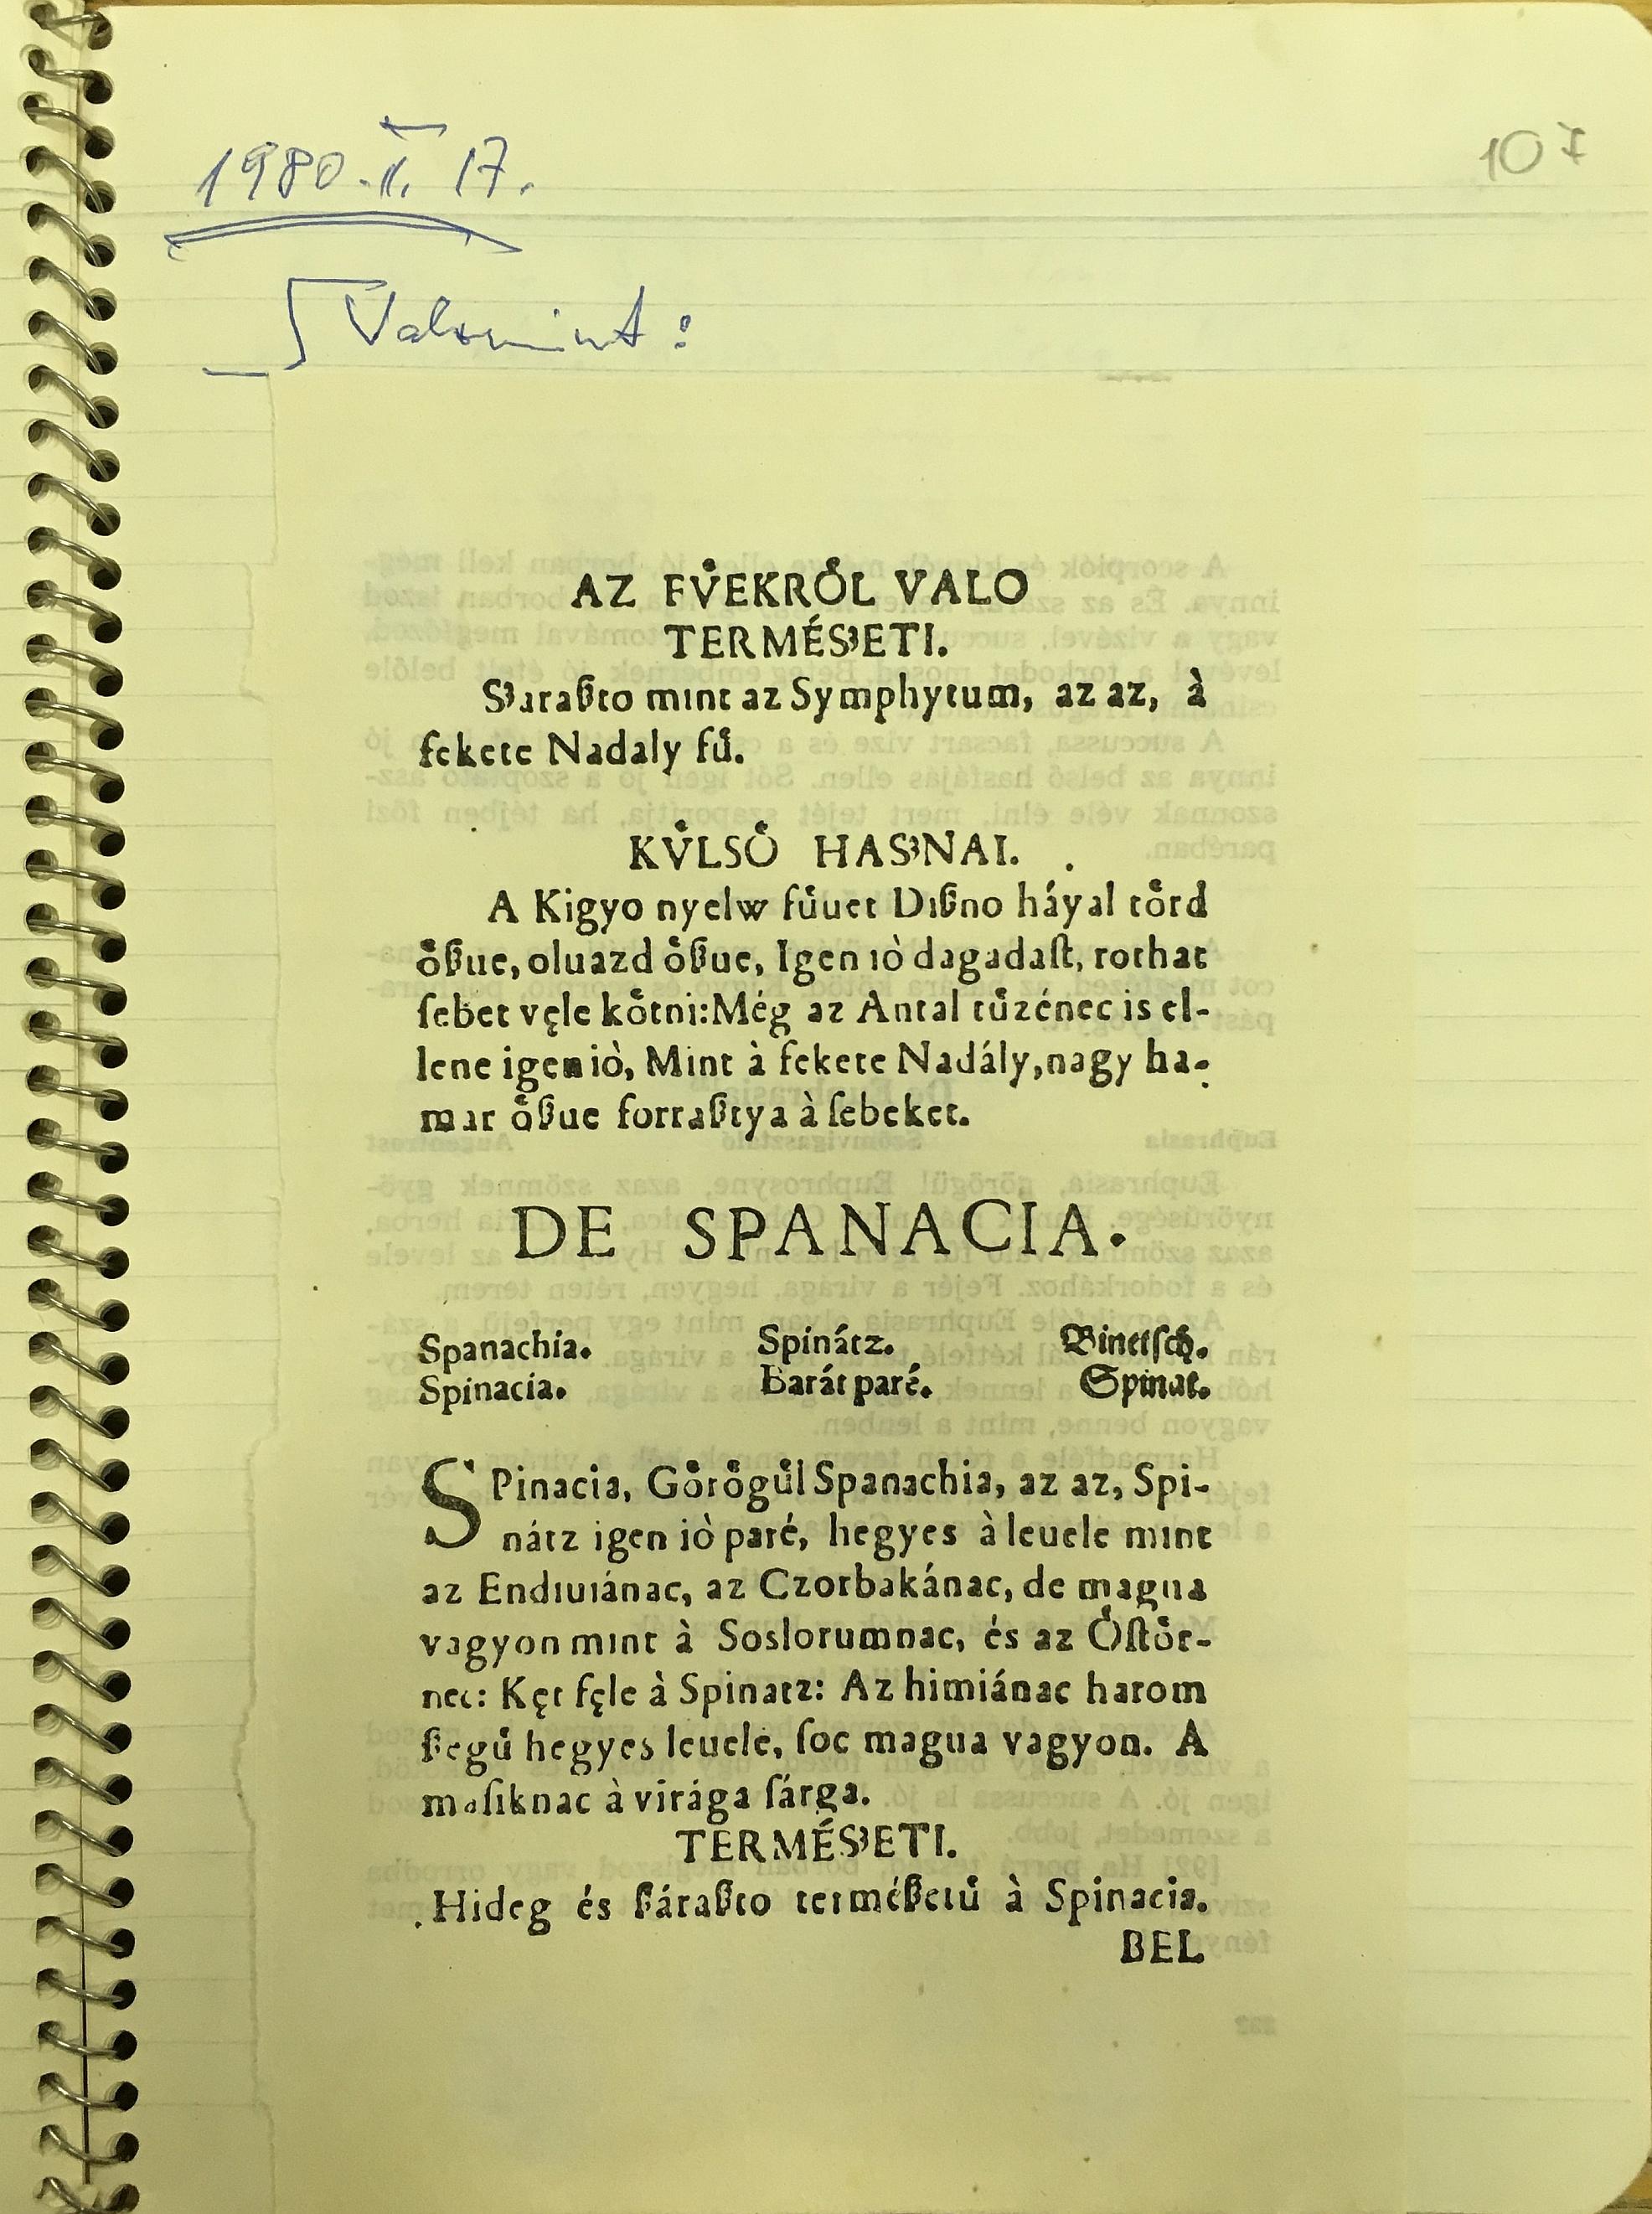 1980. II. 17.
107
Valamint:
AZ FV̊EKRO̊L VALO
TERMÉSƷETI.
SƷaraßto mint az Symphytum, az az, à
fekete Nadaly fű.
KV̊LSO̊ HASƷNAI.
A Kigyo nyelw fůuet Dißno háyal to̊rd
o̊ßue, oluazd o̊ßue, Igen iò dagadaſt, rothat
ſebet vęle ko̊tni: Még az Antal tůzénec is el-
lene igen iò, Mint à fekete Nadály, nagy ha-
mar o̊ßue forraßtya à ſebeket.
DE SPANACIA.
Spanachia. Spinátz. Binetſch.
Spinacia. Barát paré. Spinat.
SPinacia, Go̊ro̊gůl Spanachia, az az, Spi-
nátz igen iò paré, hegyes à leuele mint
az Endiuiánac, az Czorbakánac, de magua
vagyon mint à Soslorumnac, és az O̊ſto̊r-
nec: Kęt fęle à Spinatz: Az himiánac harom
ßegů hegyes leuele, ſoc magua vagyon. A
maſiknac à virága ſárga.
TERMÉSƷETI.
Hideg és ßáraßto terméßetů à Spinacia.
BEL